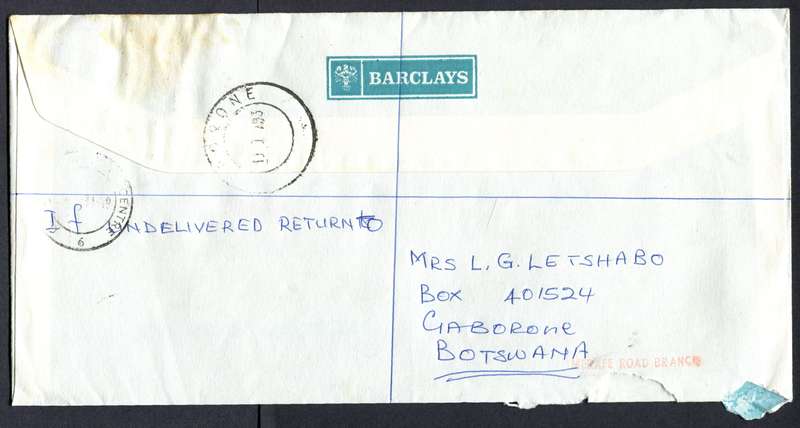 BARCLAYS
ENTRE
6
If UNDELIVERED RETURN to
MRS L. G. LETSHABO
BOX 401524
GABORONE
BOTSWANA
ROAD BRANCH